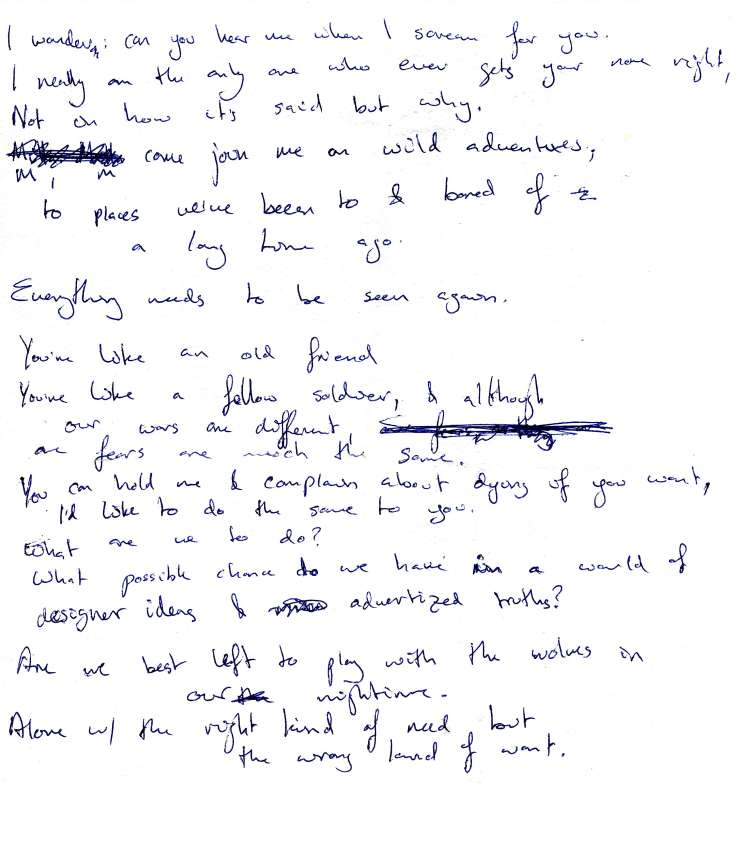 I wonder: can you hear me when I scream for you.
I really am the only one who ever gets your name right,
Not on how it's said but why.
M, M come join me on wild adventures,
to places we've been to & bored of
a long time ago.
Everything needs to be seen again.
You're like an old friend
You're like a fellow soldier, & although
our wars are different,
our fears are much the same.
You can hold me & complain about dying if you want,
I'd like to do the same to you.
What are we to do?
What possible chance do we have in a world of
designer ideas & advertized truths?
Are we best left to play with the wolves in
our nightime.
Alone w/ the right kind of need but
the wrong kind of want.